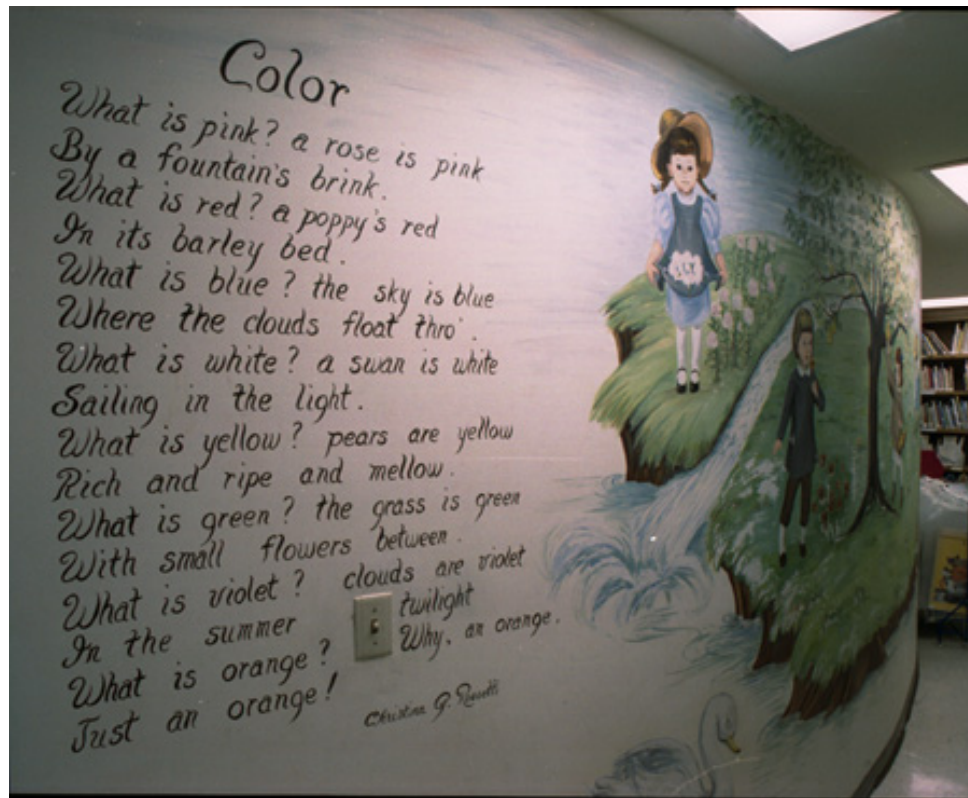 Color
What is pink? a rose is pink
By a fountain's brink.
What is red? a poppy's red
In its barley bed.
What is blue? the sky is blue
Where the clouds float thro'.
What is white? a swan is white
Sailing in the light.
What is yellow? pears are yellow
Rich and ripe and mellow.
What is green? the grass is green
With small flowers between.
What is violet? clouds are violet
In the summer twilight
What is orange? Why, an orange.
Just an orange!
Christina G. Rossetti